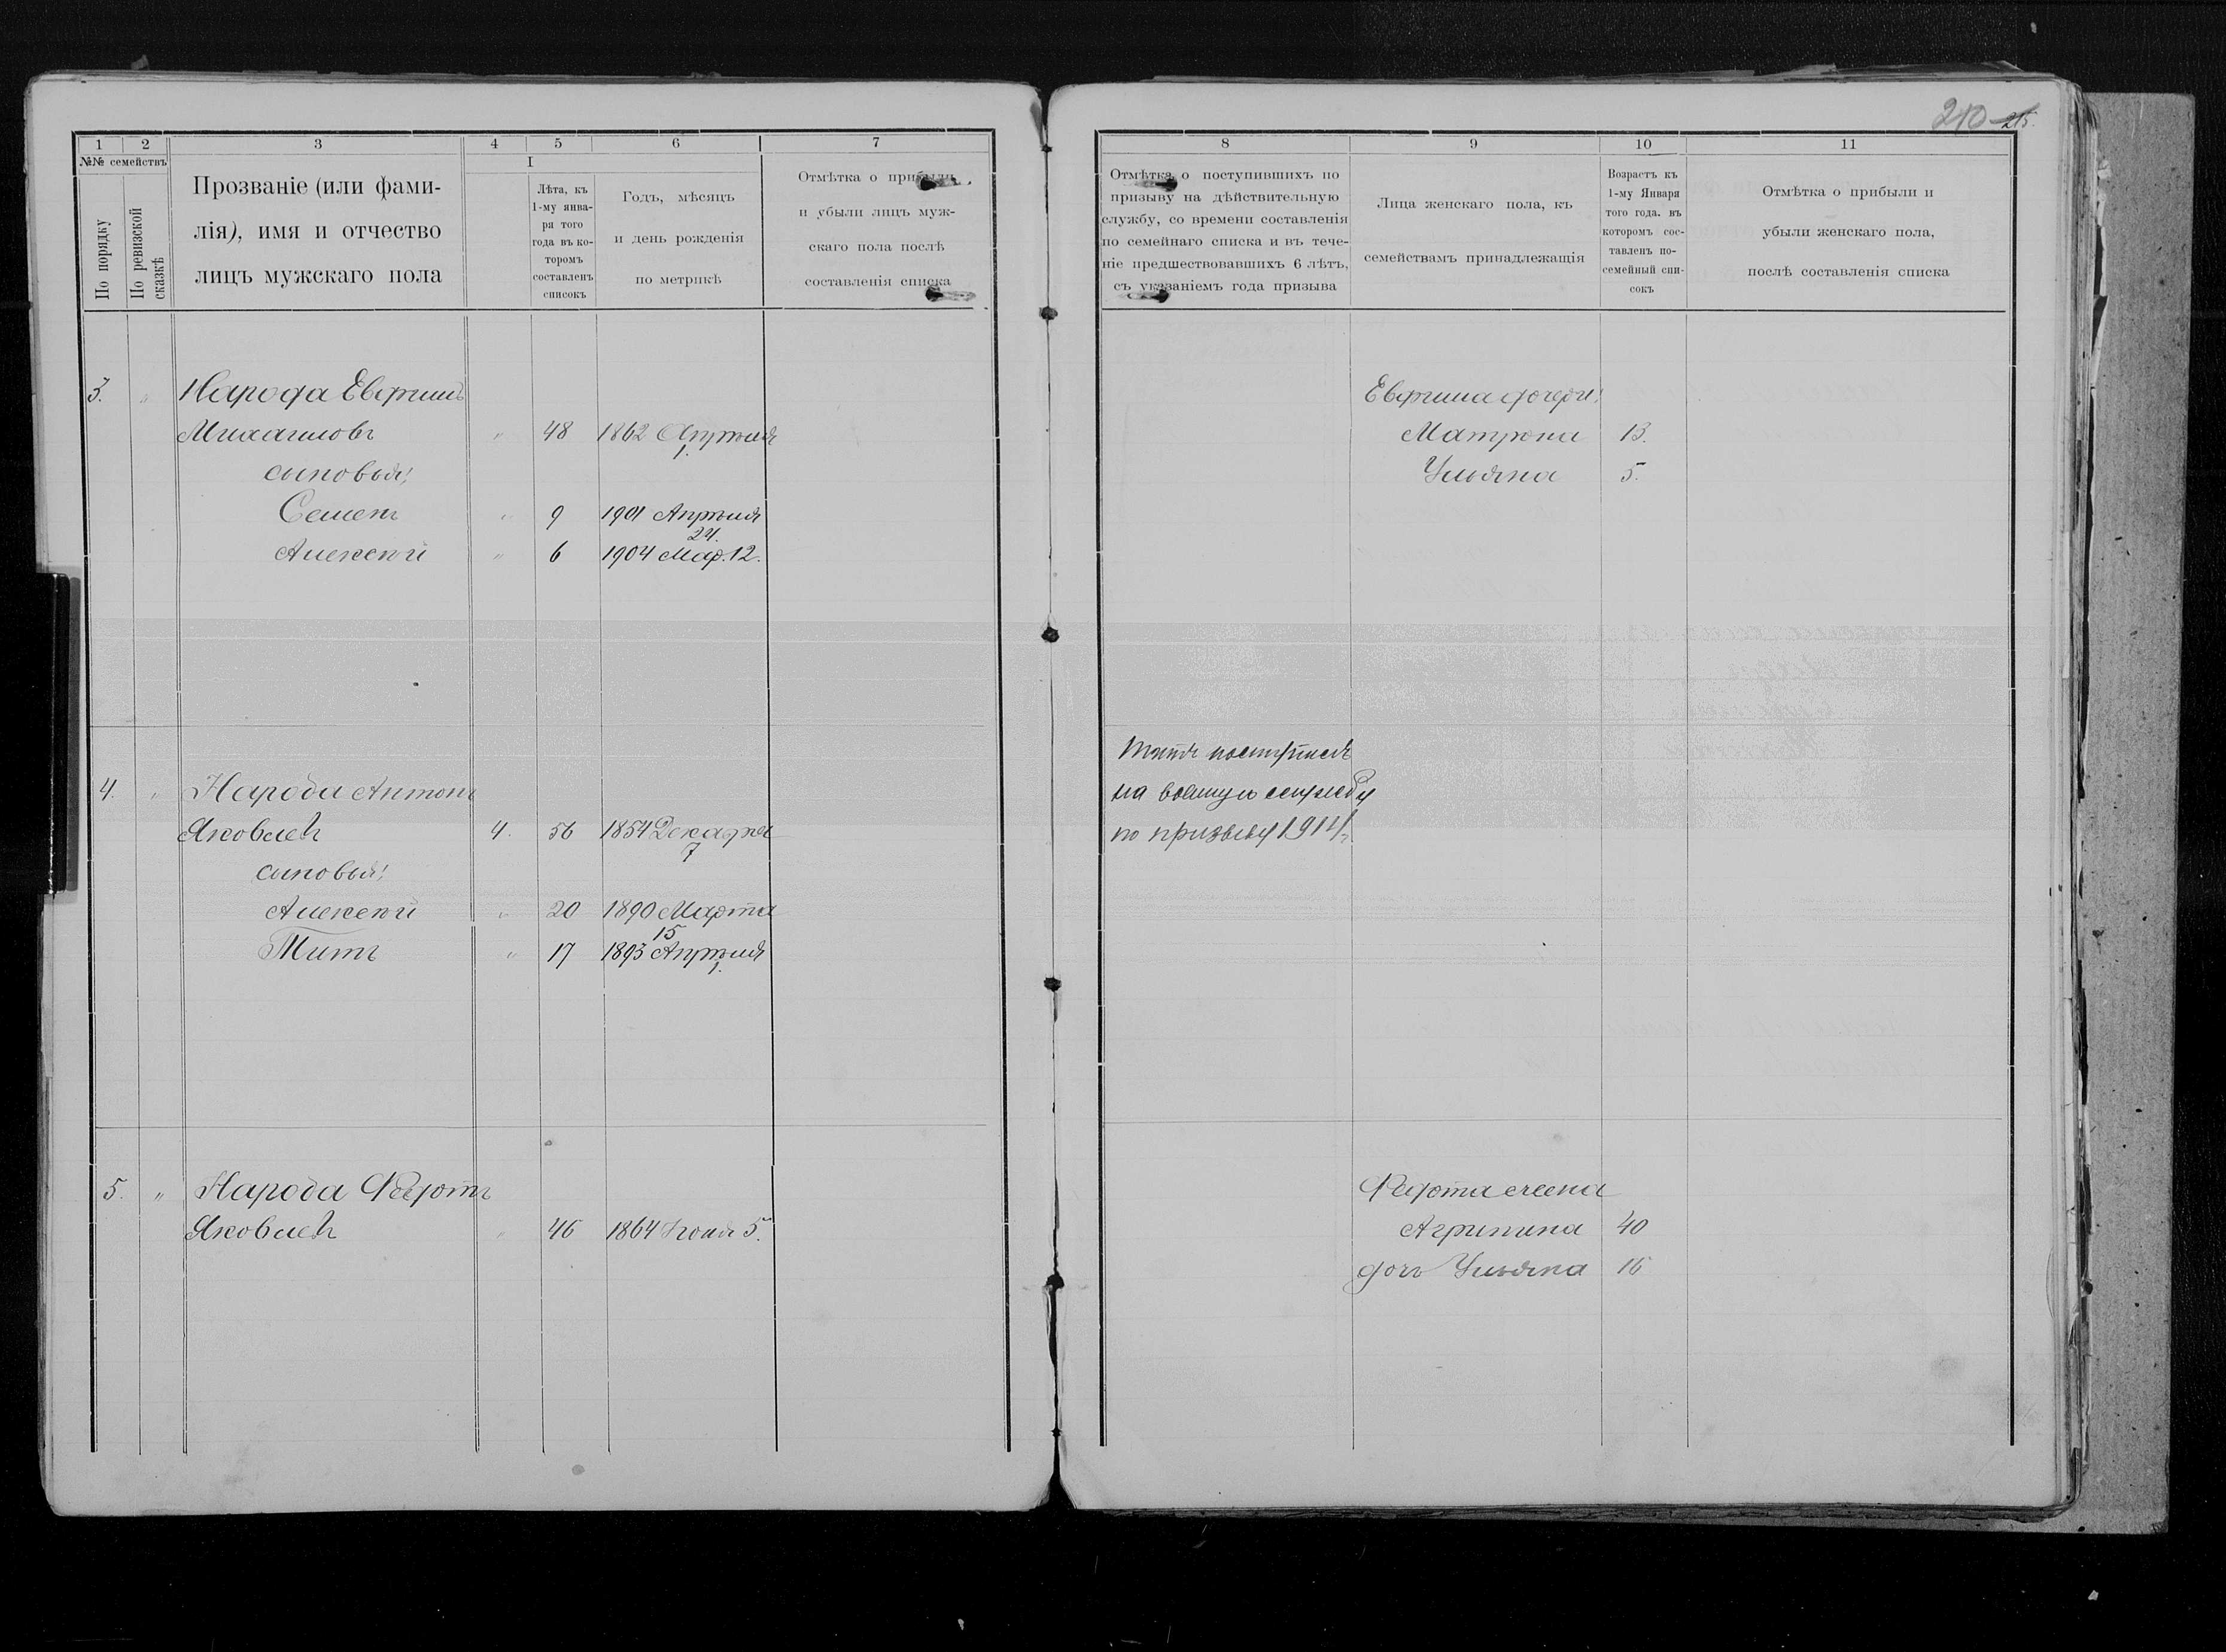 210 215.
1 2 3 4 5 6 7
№№ семействъ
По порядку
По ревизской сказкѣ
Прозваніе (или фами-
лія), имя и отчество
лицъ мужскаго пола
I
Лѣта, къ
1-му янва-
ря того
года въ ко-
торомъ
составленъ
списокъ
Годъ, мѣсяцъ
и день рожденія
по метрикѣ
Отмѣтка о прибыли
и убыли лицъ муж-
скаго пола послѣ
составленія списка
3. " Народа Евфимъ
Михаиловъ " 48 1862 Апрѣля
1.
сыновья:
Семенъ " 9 1901 Апрѣля
24.
Алексѣй " 6 1904 Мар. 12.
4. " Народа Антонъ
Яковлевъ 4. 56 1854 Декабря
7
сыновья:
Алексѣй " 20 1890 Марта
15
Титъ " 17 1893 Апрѣля
1.
5. " Народа Федотъ
Яковлевъ " 46 1864 Іюня 5.
8 9 10 11
Отмѣтка о поступившихъ по
призыву на дѣйствительную
службу, со времени составленія
по семейнаго списка и въ тече-
ніе предшествовавшихъ 6 лѣтъ,
съ указаніемъ года призыва
Лица женскаго пола, къ
семействамъ принадлежащія
Возрастъ къ
1-му Января
того года. въ
которомъ сос-
тавленъ по-
семейный спи-
сокъ
Отмѣтка о прибыли и
убыли женскаго пола,
послѣ составленія списка
Евфима дочери:
Матрона 13.
Ульяна 5.
Титъ поступилъ
на военную службу
по призыву 1914 г.
Федота жена
Агрипина 40
дочь Ульяна 16